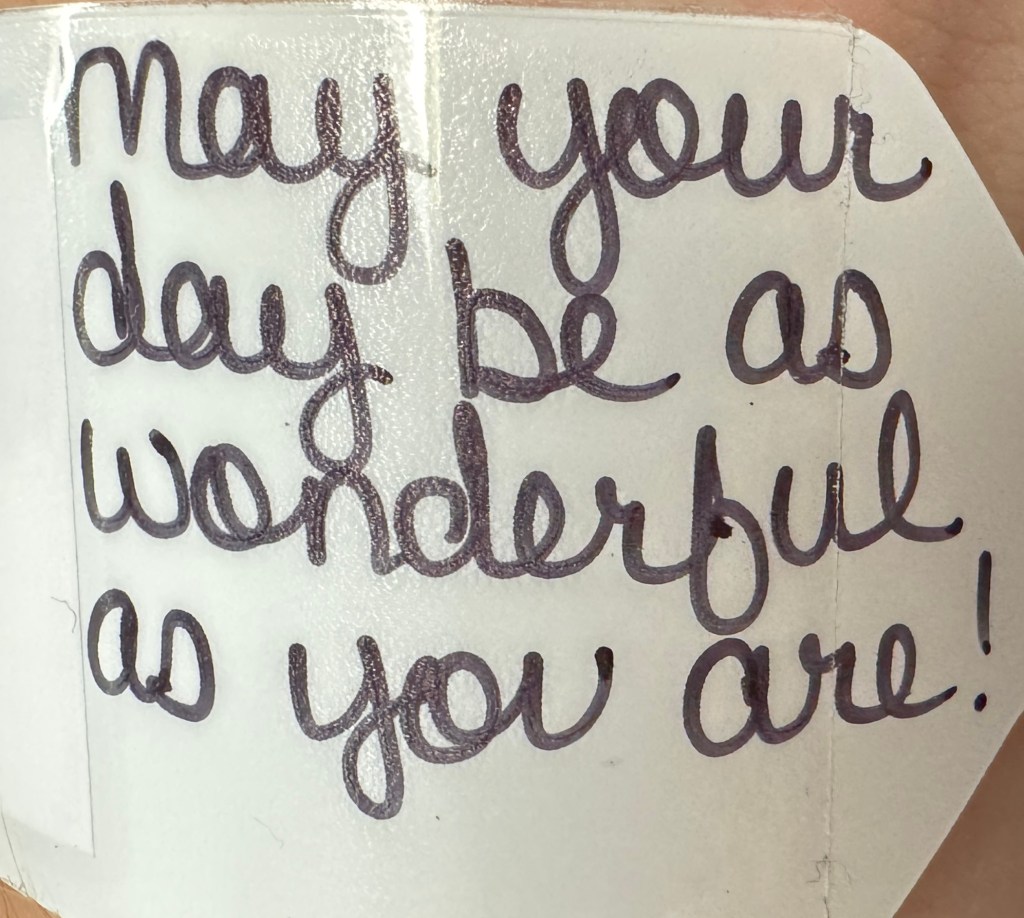 May your
day be as
wonderful
as you are!